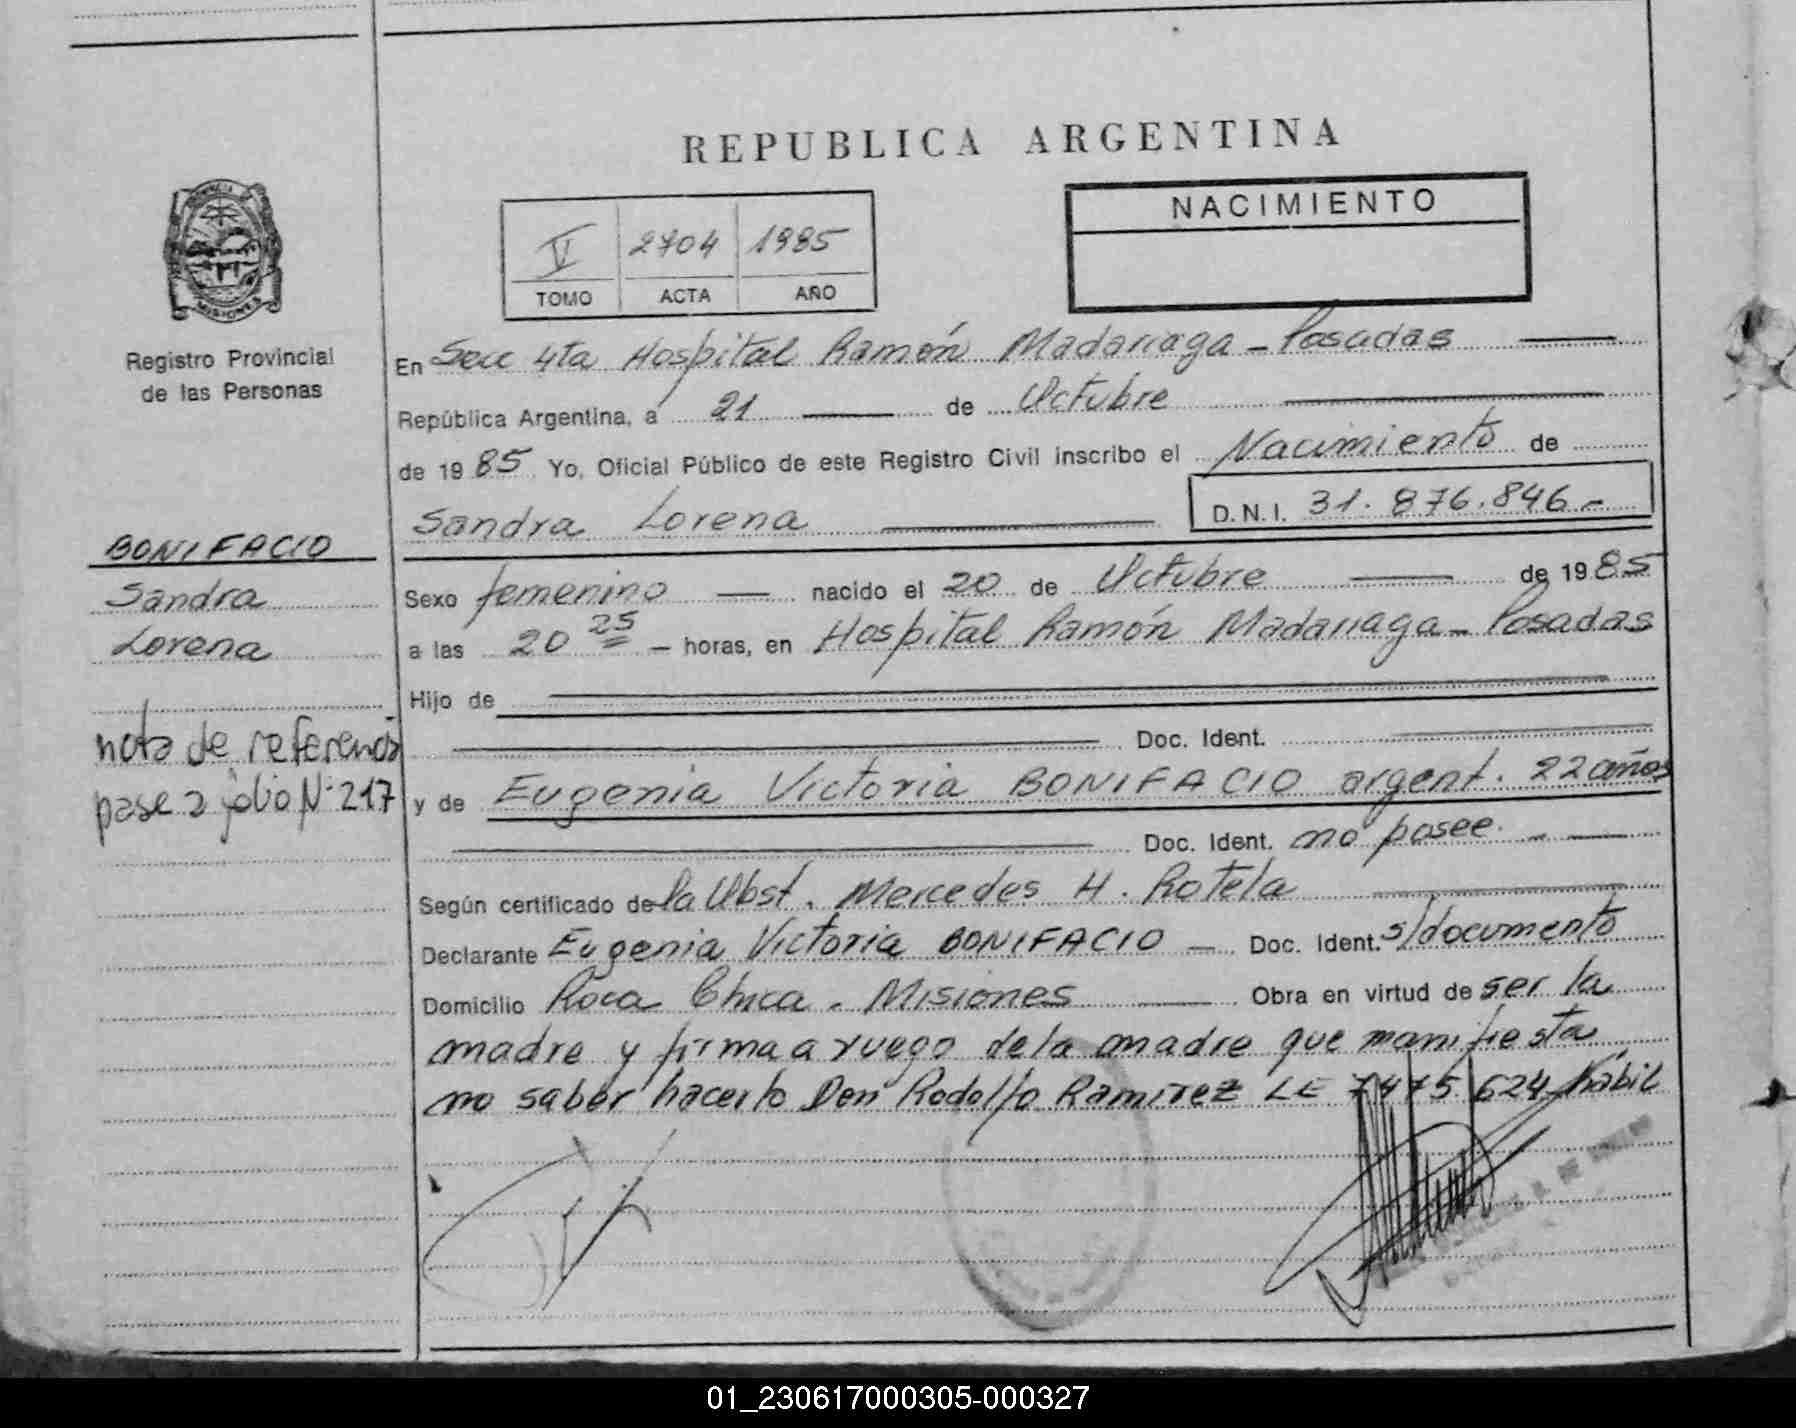 REPUBLICA ARGENTINA
V 2704 1985
TOMO ACTA AÑO
NACIMIENTO
MISIONES
Registro Provincial
de las Personas
En Secc 4ta Hospital Ramón Madariaga - Posadas
República Argentina, a 21 de Octubre
de 1985 Yo, Oficial Público de este Registro Civil inscribo el Nacimiento de
Sandra Lorena D.N.I. 31.876.846.-
BONIFACIO
Sandra
Lorena
nota de referencia
pase a folio Nº 217
Sexo femenino nacido el 20 de Octubre de 1985
a las 20 25 horas, en Hospital Ramón Madariaga - Posadas
Hijo de
Doc. Ident.
y de Eugenia Victoria BONIFACIO argent. 22 años
Doc. Ident. no posee.
Según certificado de la Obst. Mercedes H. Rotela
Declarante Eugenia Victoria BONIFACIO - Doc. Ident. s/documento
Domicilio Roca Chica - Misiones Obra en virtud de ser la
madre y firma a ruego de la madre que manifiesta
no saber hacerlo Don Rodolfo Ramirez LE 7475624 hábil
01_230617000305-000327